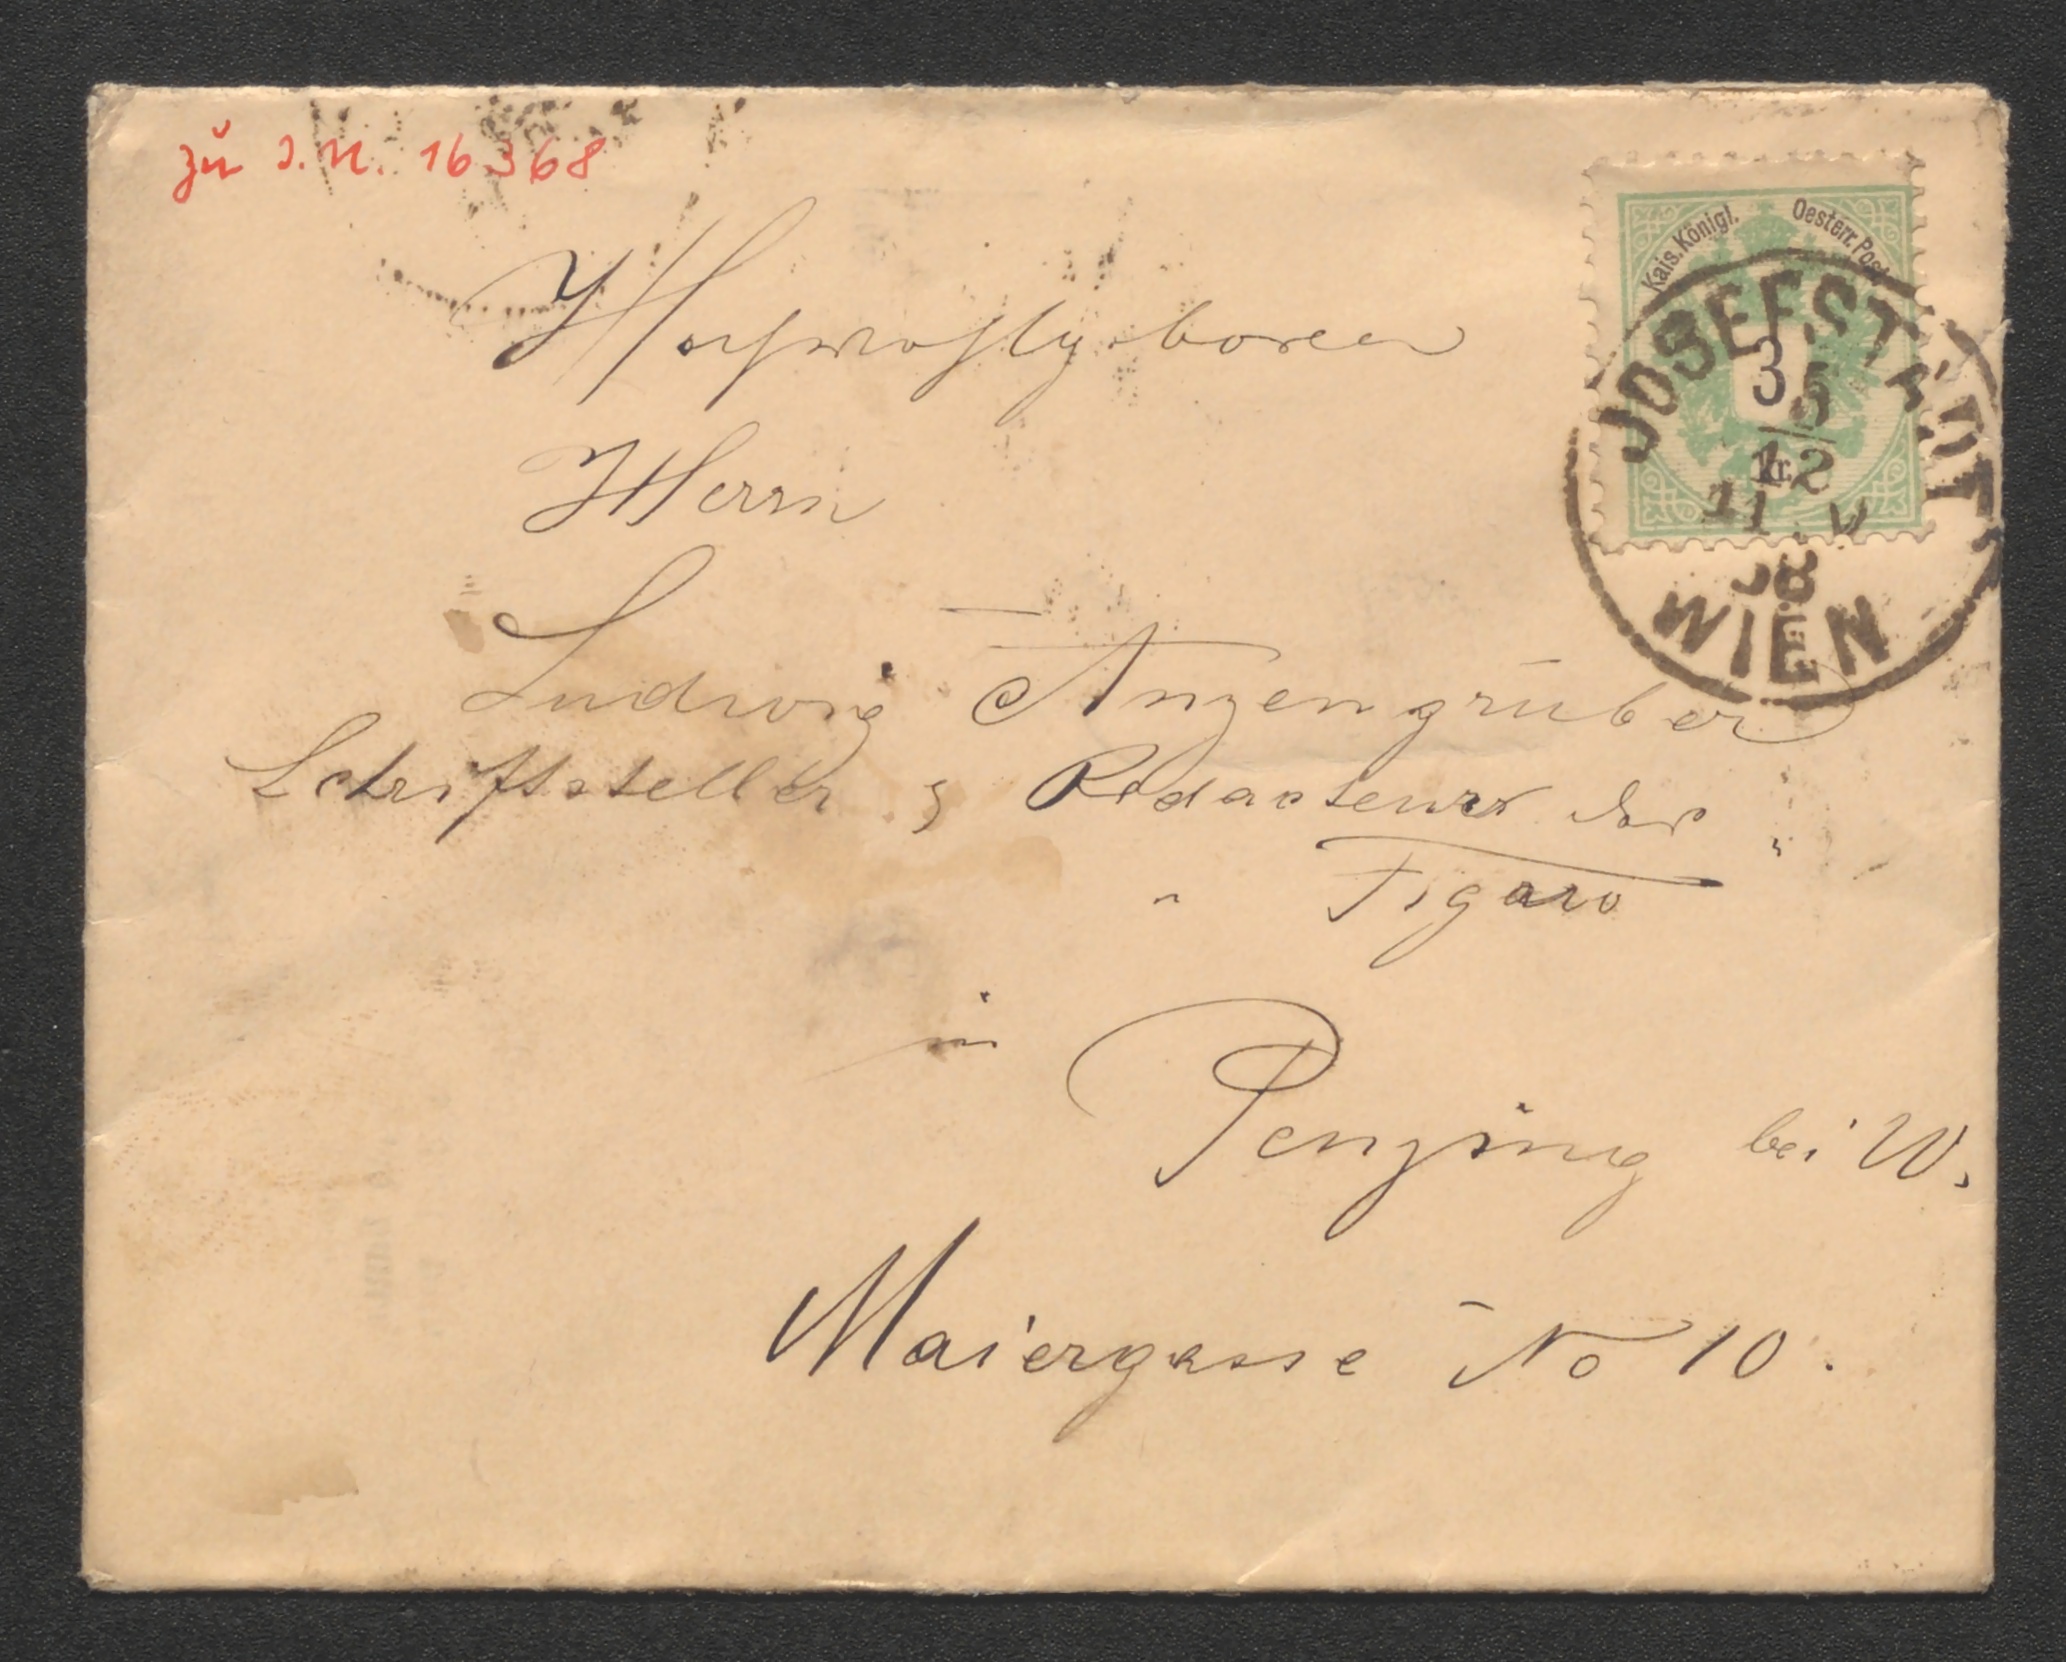 zu I.N. 16368
Kais. Königl. Oesterr. Post
3
kr.
JOSEFSTADT
5
12
11 V
WIEN
Hochwohlgeboren
Herrn
Ludwig Anzengruber
Schriftsteller & Redacteur des "
" Figaro
in Penzing bei W.
Maiergasse No 10.